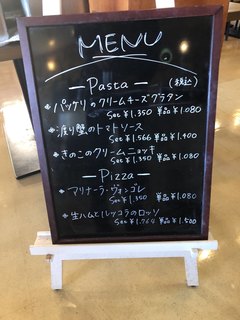 MENU
— Pasta — (税込)
* パッケリのクリームチーズグラタン
Set ¥1.350 単品 ¥1.080
* 渡り蟹のトマトソース
Set ¥1.566 単品 ¥1.400
* きのこのクリームニョッキ
Set ¥1.350 単品 ¥1.080
— Pizza —
* マリナーラ・ヴォンゴレ
Set ¥1.350 単品 ¥1.080
* 生ハムとルッコラのロッソ
Set ¥1.764 単品 ¥1.500